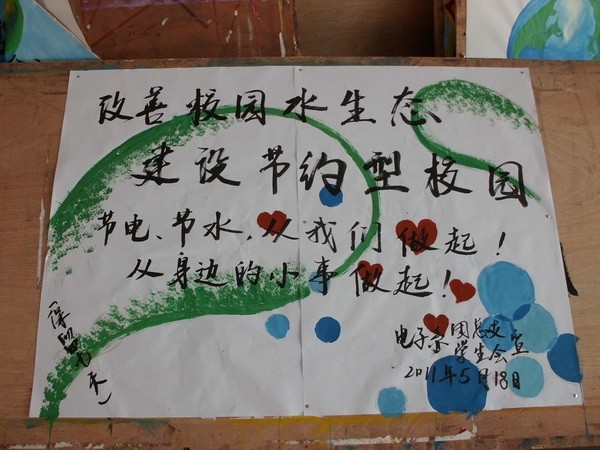 改善校园水生态、
建设节约型校园
节电、节水，从我们做起！
从身边的小事做起！
电子系团总支
学生会宣
2011年5月18日